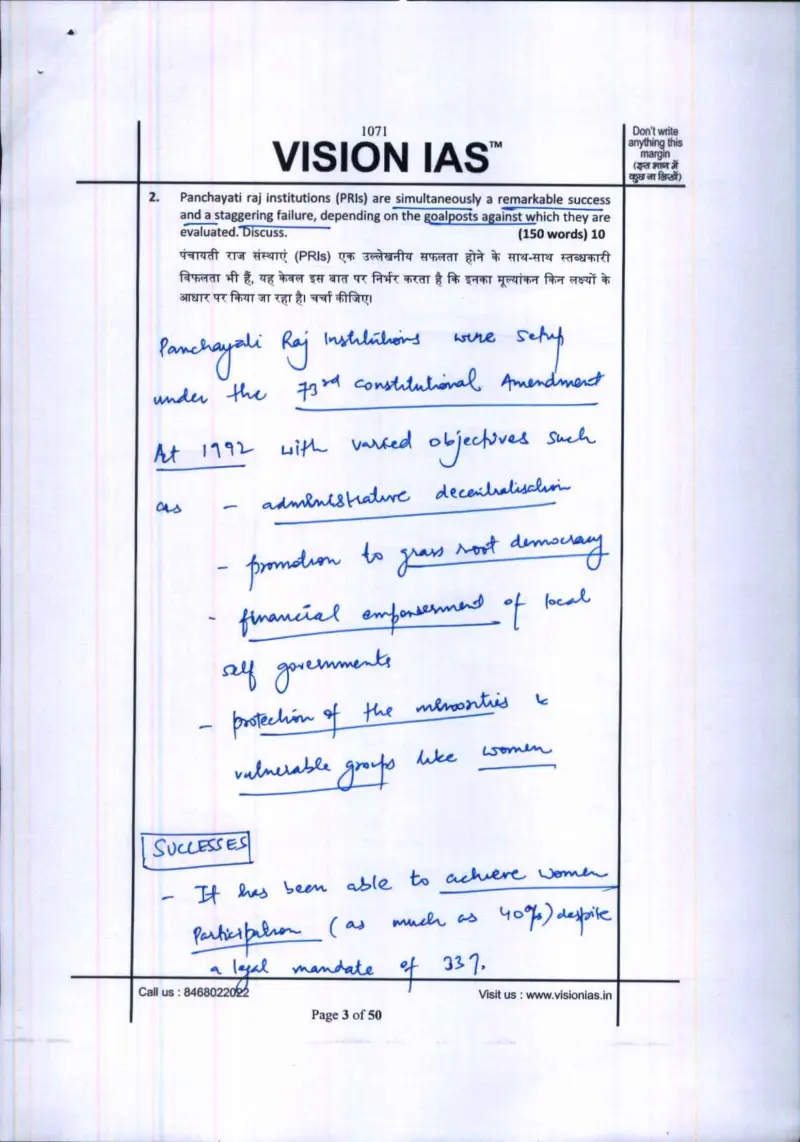 1071
VISION IAS™
Don't write
anything this
margin
(इस भाग में
कुछ ना लिखें)
2. Panchayati raj institutions (PRIs) are simultaneously a remarkable success
and a staggering failure, depending on the goalposts against which they are
evaluated. Discuss. (150 words) 10
पंचायती राज संस्थाएं (PRIs) एक उल्लेखनीय सफलता होने के साथ-साथ स्तब्धकारी
विफलता भी हैं, यह केवल इस बात पर निर्भर करता है कि इनका मूल्यांकन किन लक्ष्यों के
आधार पर किया जा रहा है। चर्चा कीजिए।
Panchayati Raj Institutions were setup
under the 73rd Constitutional Amendment
At 1992 with varied objectives such
as - administrative decentralisation
- promotion to grass root democracy
- financial empowerment of local
self governments
- protection of the minorities &
vulnerable groups like women
SUCCESSES
- It has been able to achieve women
participation (as much as 40%) despite
a legal mandate of 33%.
Call us : 8468022022
Visit us : www.visionias.in
Page 3 of 50